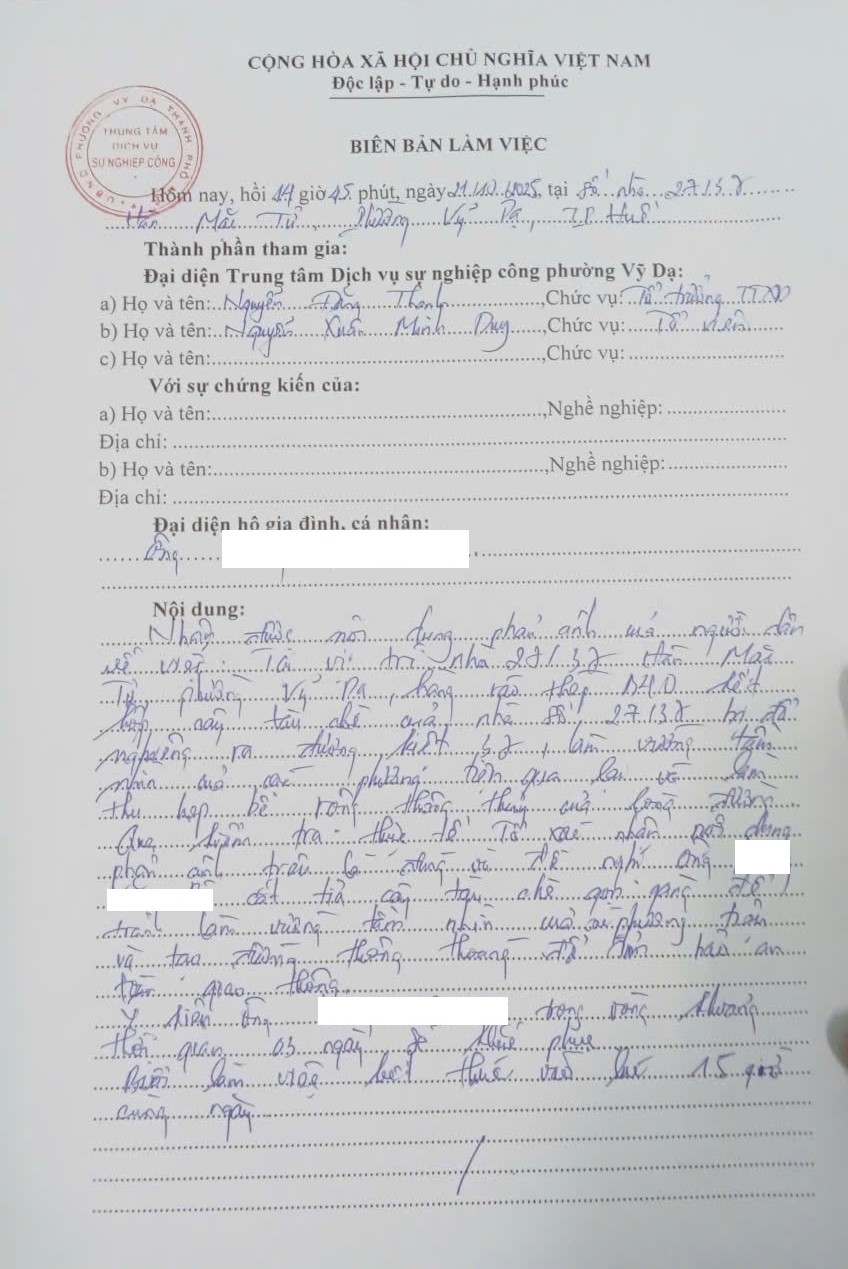 CỘNG HÒA XÃ HỘI CHỦ NGHĨA VIỆT NAM
Độc lập - Tự do - Hạnh phúc
UBND PHƯỜNG VỸ DẠ THÀNH PHỐ
TRUNG TÂM
DỊCH VỤ
SỰ NGHIỆP CÔNG
BIÊN BẢN LÀM VIỆC
Hôm nay, hồi 14 giờ 45 phút, ngày 21/10/2025, tại số nhà 27/32
Hàn Mặc Tử, phường Vỹ Dạ, TP Huế
Thành phần tham gia:
Đại diện Trung tâm Dịch vụ sự nghiệp công phường Vỹ Dạ:
a) Họ và tên: Nguyễn Đăng Thanh, Chức vụ: Tổ trưởng
b) Họ và tên: Nguyễn Xuân Minh Duy, Chức vụ: Tổ viên
c) Họ và tên:, Chức vụ:
Với sự chứng kiến của:
a) Họ và tên:, Nghề nghiệp:
Địa chỉ:
b) Họ và tên:, Nghề nghiệp:
Địa chỉ:
Đại diện hộ gia đình, cá nhân:
Ông
Nội dung:
Nhận được nội dung phản ánh của người dân
về việc: Tại vị trí nhà Hàn Mặc
Tử, phường Vỹ Dạ, hàng rào thép kết
hợp cây tàu chè của nhà số bị đổ
nghiêng ra đường kiệt, làm vướng tầm
nhìn của các phương tiện qua lại và làm
thu hẹp bề rộng thông thuỷ của lòng đường
Qua kiểm tra thực tế Tổ xác nhận nội dung
phản ánh trên là đúng và đề nghị Ông
cắt tỉa cây tàu chè gọn gàng để
tránh làm vướng tầm nhìn của phương tiện
và tạo đường thông thoáng để đảm bảo an
toàn giao thông.
Ý kiến ông, trong vòng khoảng
thời gian 03 ngày để khắc phục
Buổi làm việc kết thúc vào lúc 15 giờ
cùng ngày